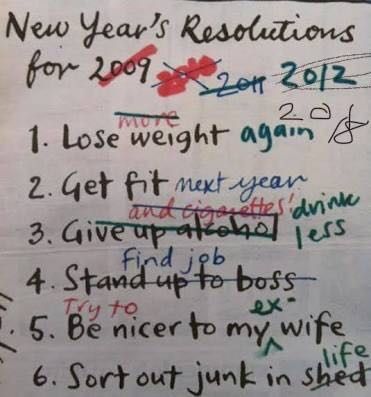 New Year's Resolutions
for 2009 2011 2012
2018
more
1. Lose weight again
2. Get fit next year
and cigarettes! drink
3. Give up alcohol less
find job
4. Stand up to boss
Try to ex-
5. Be nicer to my wife
life
6. Sort out junk in shed